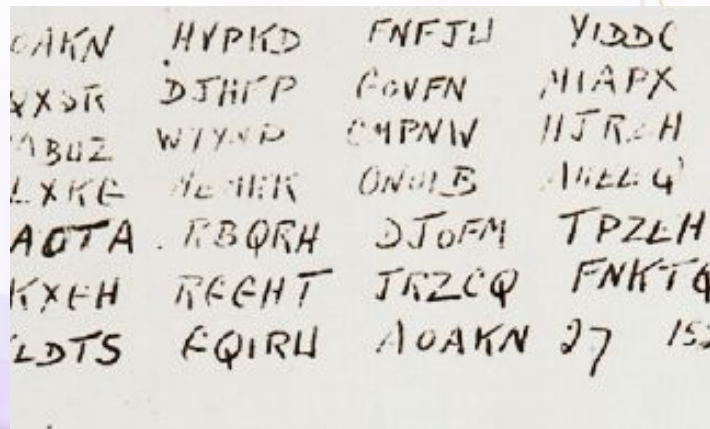 OAKN HVPKD FNFJU YIDDC
QXSR DJHFP GOVFN MIAPX
ABUZ WYYNP CMPNW HJRZH
LXKG ONOIB
AOTA RBQRH DJOFM TPZEH
KXEH RGGHT JRZCQ FNKTQ
LDTS GQIRU AOAKN 27 152